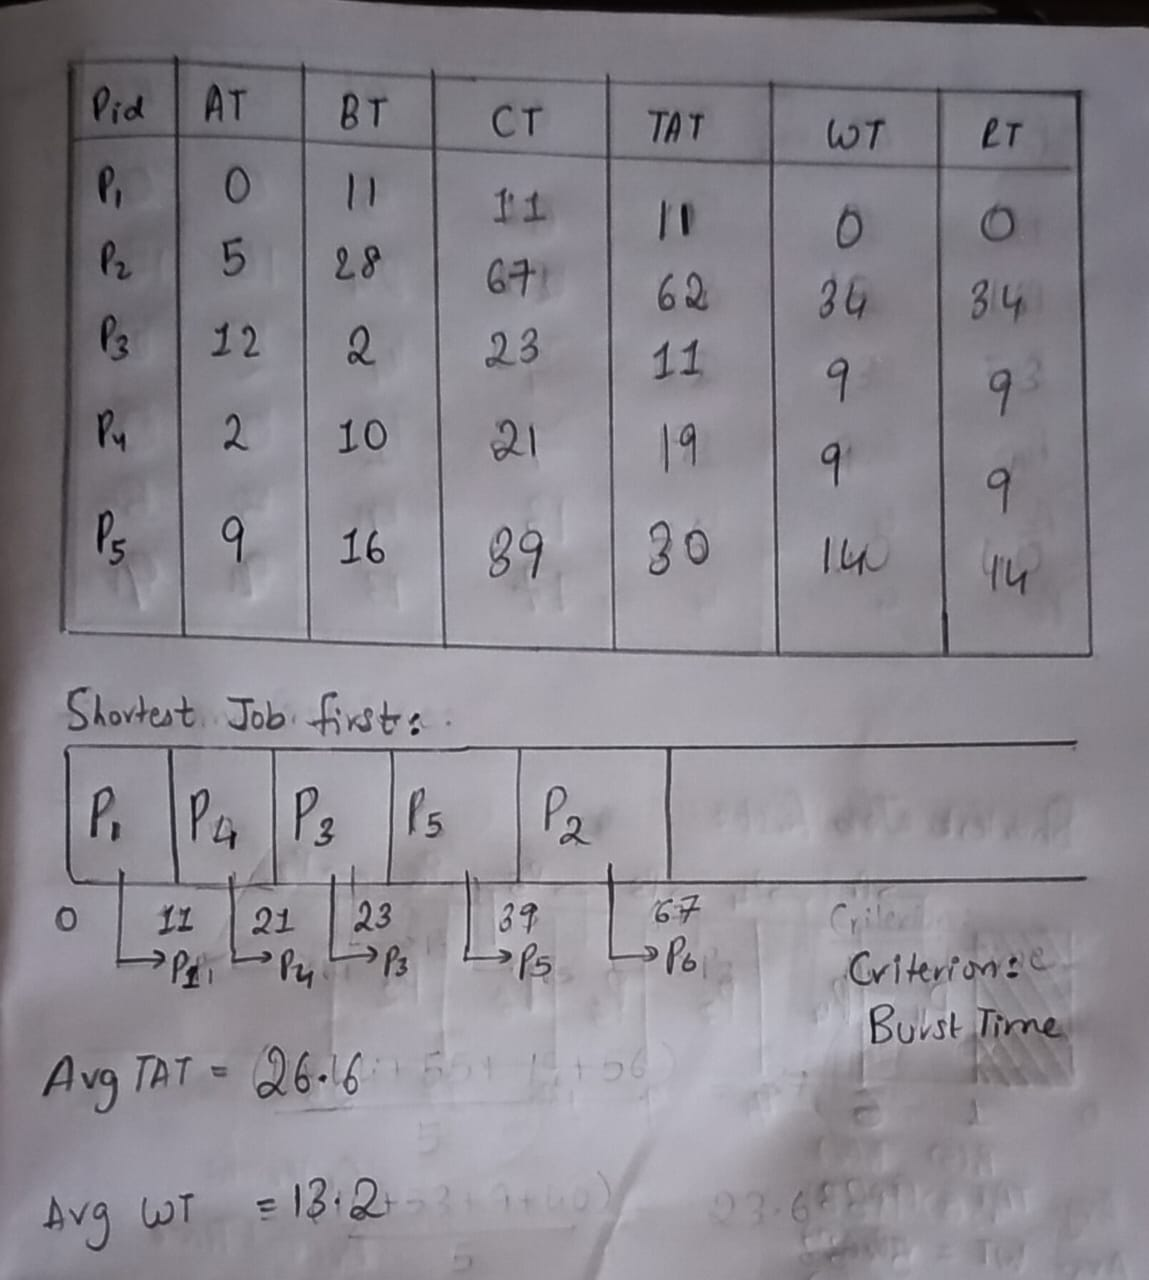 Pid AT BT CT TAT WT RT
P1 0 11 11 11 0 0
P2 5 28 67 62 34 34
P3 12 2 23 11 9 9
P4 2 10 21 19 9 9
P5 9 16 39 30 14 14
Shortest Job first:
P1 P4 P3 P5 P2
0 11 21 23 39 67
P1 P4 P3 P5 P6
Criterion:
Burst Time
Avg TAT = 26.6
Avg WT = 13.2